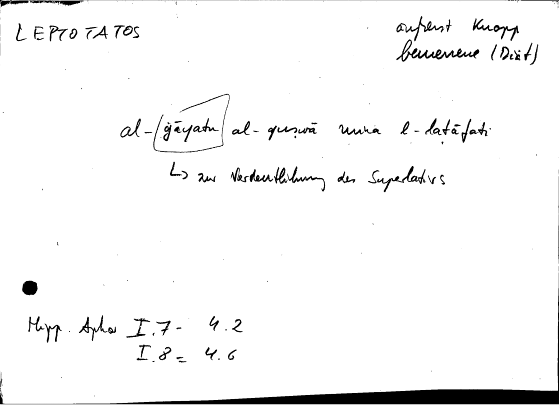 LEPTOTATOS
äußerst knapp
bemessene (Diät)
al-ġāyatu al-quṣwā mina l-laṭāfati
↳ zur Verdeutlichung des Superlativs
Hipp. Aphor I.7 - 4.2
I.8 = 4.6